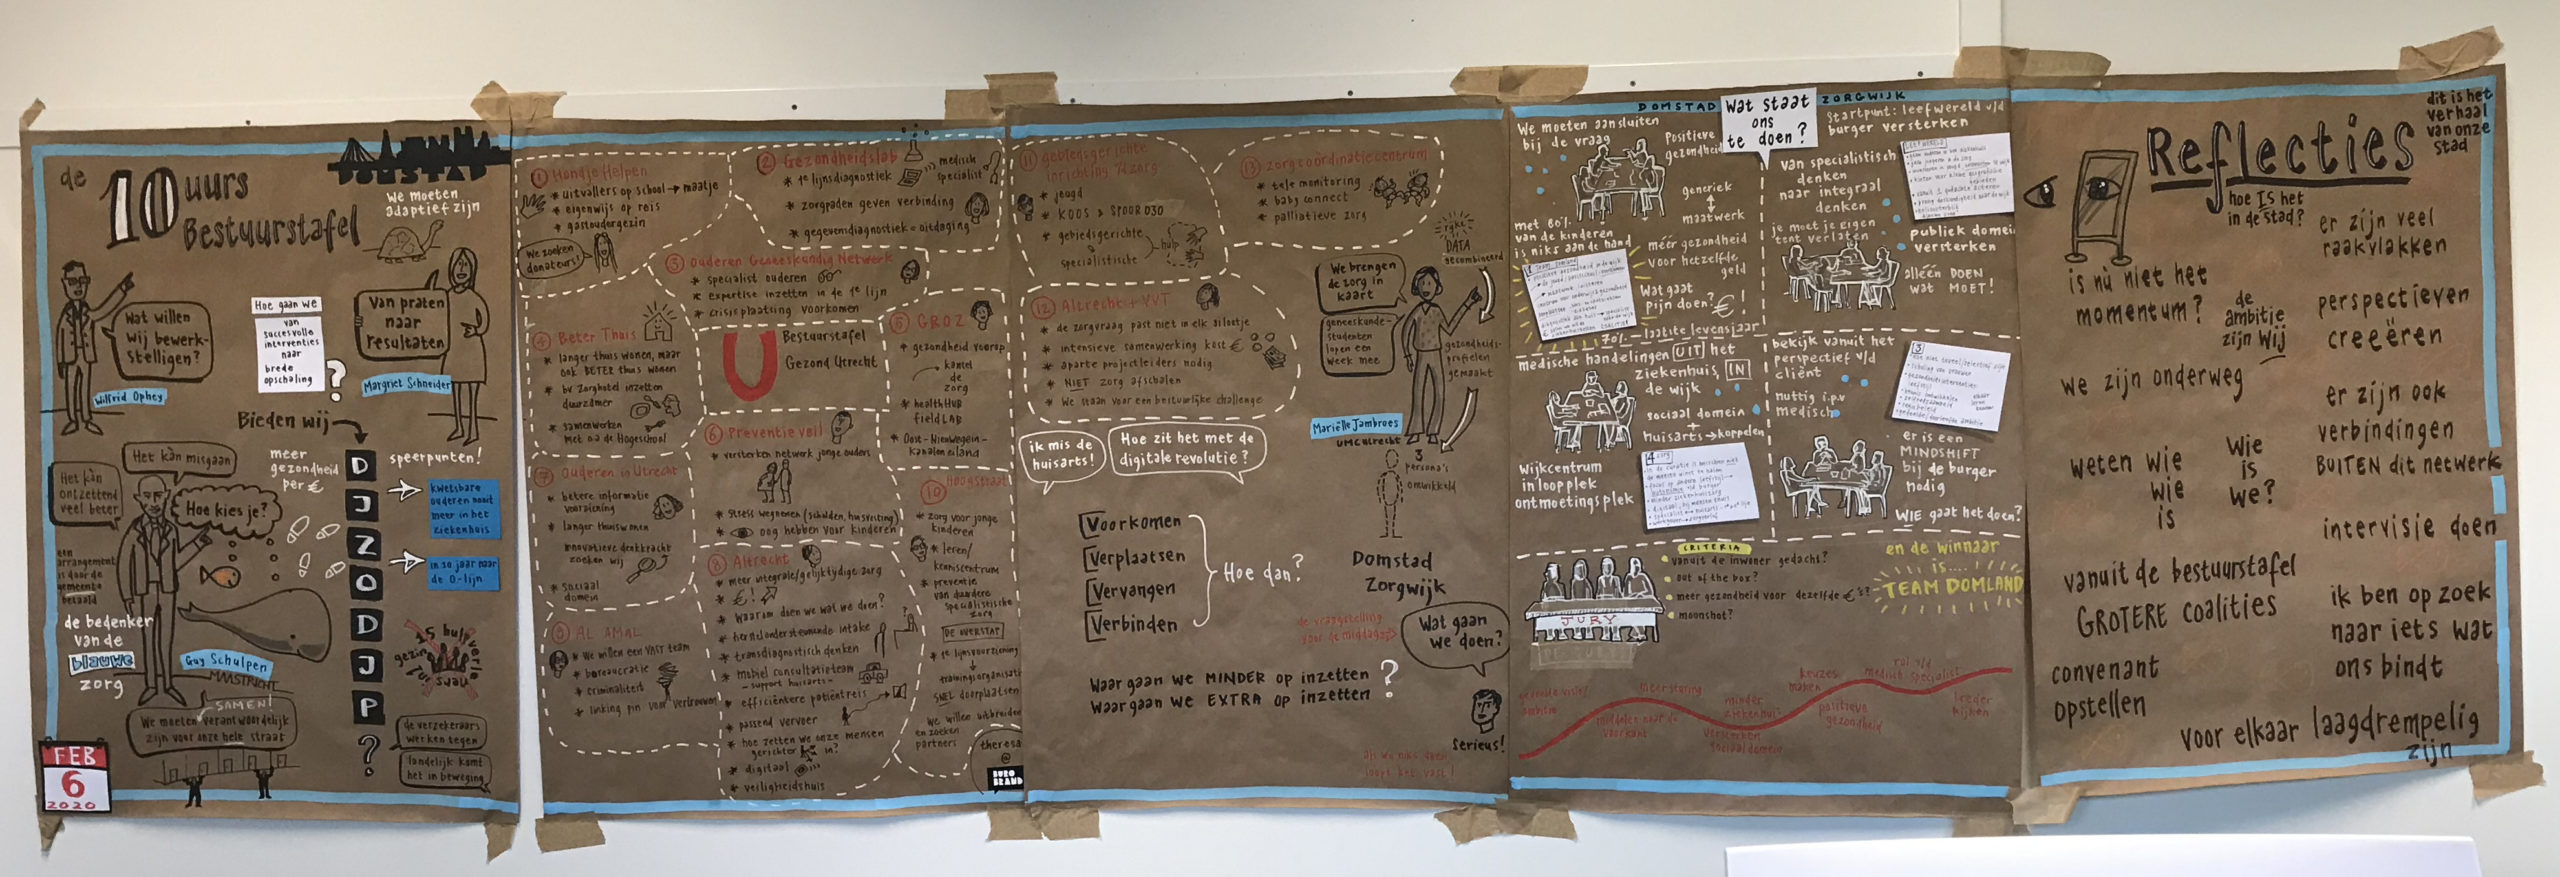 de
10 uurs
Bestuurstafel
We moeten
adaptief zijn
Wat willen
wij bewerk-
stelligen?
Wilfrid Ophey
Hoe gaan we
van
succesvolle
interventies
naar
brede
opschaling
?
Van praten
naar
resultaten
Margriet Schneider
Bieden wij
D
J
Z
O
D
J
P
?
meer
gezondheid
per €
speerpunten!
kwetsbare
ouderen nooit
meer in het
ziekenhuis
in 10 jaar naar
de 0-lijn
Het kàn misgaan
Het kàn
ontzettend
veel beter
Hoe kies je?
een
arrangement
is door de
gemeente
betaald
de bedenker
van de
blauwe
zorg
Guy Schulpen
MAASTRICHT
SAMEN!
We moeten verantwoordelijk
zijn voor onze hele straat
15 hulpverleners
gezin
de verzekeraars
werken tegen
landelijk komt
het in beweging
FEB
6
2020
1 Handje Helpen
* uitvallers op school → maatje
* eigenwijs op reis
* gastoudergezin
We zoeken
donateurs!
2 Gezondheidslab
* 1e lijnsdiagnostiek
* zorgpaden geven verbinding
* gegevensdiagnostiek = uitdaging
medisch
specialist
3 Ouderen Geneeskundig Netwerk
* specialist ouderen
* expertise inzetten in de 1e lijn
* crisisplaatsing voorkomen
4 Beter Thuis
* langer thuis wonen, maar
ook BETER thuis wonen
* bv zorghotel inzetten
duurzamer
* samenwerken
met na de Hogeschool
U Bestuurstafel
Gezond Utrecht
5 GROZ
* gezondheid voorop
kantel
de
zorg
* healthHub
fieldLAB
* Oost - Nieuwegein -
kanaleneiland
6 Preventie veil
* versterken netwerk jonge ouders
* stress wegnemen (schulden, huisvesting)
* oog hebben voor kinderen
7 Ouderen in Utrecht
* betere informatie
voorziening
* langer thuiswonen
innovatieve denkkracht
zoeken wij
* sociaal
domein
8 Altrecht
* meer integrale/gelijktijdige zorg
* €!
* waarom doen we wat we doen?
* herstelondersteunende intake
* transdiagnostisch denken
* mobiel consultatieteam
- support huisarts -
* efficiëntere patientreis
* passend vervoer
* hoe zetten we onze mensen
gerichter in?
* digitaal
* veiligheidshuis
9 AL AMAL
* We willen een VAST team
* bureaucratie
* criminaliteit
* linking pin voor vertrouwen
10 Hoogstraat
* zorg voor jonge
kinderen
* leren/
kenniscentrum
* preventie
van duurdere
specialistische
zorg
DE OVERSTAP
* 1e lijnsvoorziening
↓
trainingsorganisatie
SNEL doorplaatsen
we willen uitbreiden
en zoeken
partners
theresa
@
BURO
BRAND
11 gebiedsgerichte
inrichting JZzorg
* jeugd
* KOOS & SPOOR030
* gebiedsgerichte
specialistische
hulp
12 Altrecht + VVT
* de zorgvraag past niet in elk silootje
* intensieve samenwerking kost €
* aparte projectleiders nodig
* NIET zorg afschalen
* We staan voor een bestuurlijke challenge
13 zorgcoördinatiecentrum
* tele monitoring
* baby connect
* palliatieve zorg
We brengen
de zorg in
kaart
geneeskunde-
studenten
lopen een
week mee
rijke
DATA
gecombineerd
gezondheids-
profielen
gemaakt
3
persona's
ontwikkeld
Mariëlle Jambroes
UMC Utrecht
ik mis de
huisarts!
Hoe zit het met de
digitale revolutie?
Voorkomen
Verplaatsen
Vervangen
Verbinden
Hoe dan?
Domstad
Zorgwijk
de vraagstelling
voor de middag:
Wat gaan
we doen?
Waar gaan we MINDER op inzetten
Waar gaan we EXTRA op inzetten
?
Serieus!
als we niks doen
loopt het vast!
DOMSTAD ZORGWIJK
Wat staat
ons
te doen?
We moeten aansluiten
bij de vraag
Positieve
gezondheid
generiek
↕
maatwerk
met 80%
van de kinderen
is niks aan de hand
méér gezondheid
voor hetzelfde
geld
Wat gaat
pijn doen? €!
70% - laatste levensjaar
1 Team Domland
Startpunt: leefwereld v/d
burger versterken
van specialistisch
denken
naar integraal
denken
je moet je eigen
tent verlaten
LEEFWERELD
publiek domein
versterken
alléén DOEN
wat MOET!
medische handelingen UIT het
ziekenhuis, IN
de wijk
sociaal domein
+
huisarts → koppelen
Wijkcentrum
inloopplek
ontmoetingsplek
4 zorg
bekijk vanuit het
perspectief v/d
cliënt
nuttig i.p.v
medisch
3
er is een
MINDSHIFT
bij de burger
nodig
WIE gaat het doen?
JURY
DE JURY
CRITERIA
• vanuit de inwoner gedacht?
• out of the box?
• meer gezondheid voor dezelfde €'s?
• moonshot?
en de winnaar
is....
TEAM DOMLAND
gezonde visie/
ambitie
middelen naar de
voorkant
meer sturing
minder
ziekenhuis
versterken
sociaal domein
keuzes
maken
positieve
gezondheid
rol v/d
medisch specialist
breder
kijken
Reflecties
dit is het
verhaal
van onze
stad
hoe IS het
in de stad?
er zijn veel
raakvlakken
is nù niet het
momentum?
de
ambitie
zijn wij
perspectieven
creeëren
we zijn onderweg
er zijn ook
verbindingen
BUITEN dit netwerk
weten wie
wie
is
Wie
is
we?
intervisie doen
vanuit de bestuurstafel
GROTERE coalities
ik ben op zoek
naar iets wat
ons bindt
convenant
opstellen
voor elkaar laagdrempelig
zijn